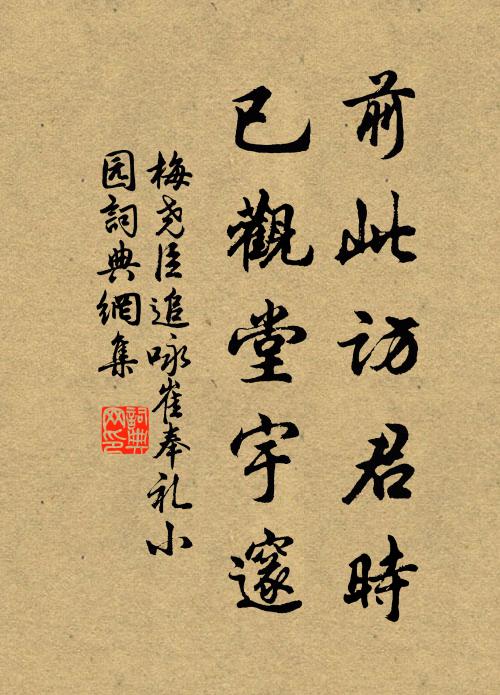 前此访君時
已觀堂宇邃
梅尧臣追咏崔奉礼小
园詞典網集
詞典网印